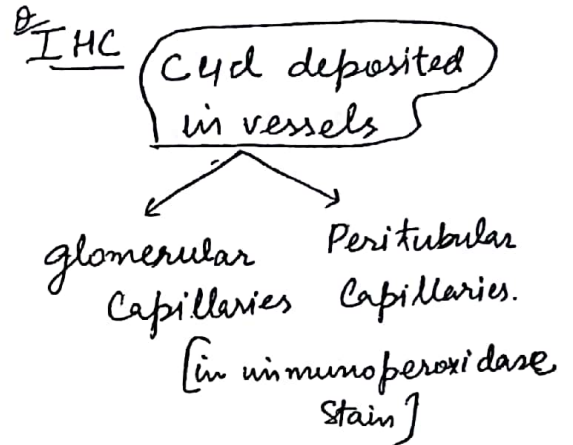 IHC
C4d deposited
in vessels
glomerular
Capillaries
Peritubular
Capillaries.
[in immunoperoxidase
stain]